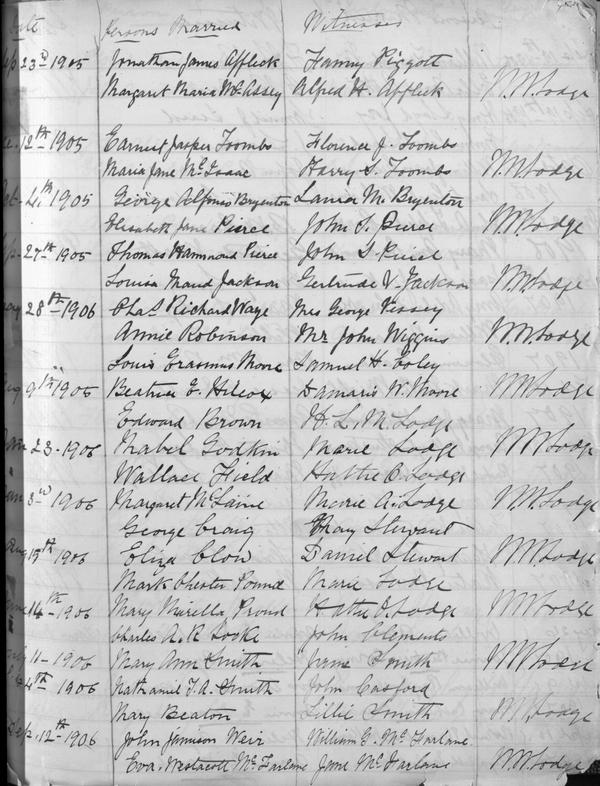 Date Persons Married Witnesses
23rd 1905 Jonathan James Affleck Fanny Piggott
Margaret Maria Assey Alfred H. Affleck W.W. Lodge
12th 1905 Earnest Jasper Toombs Florence J. Toombs
Maria Jane McIsaac Harry S. Toombs W.W. Lodge
4th 1905 George Alfonus Bryenton M. Bryenton
Elisabeth Jane Pierce John S. Pierce W.W. Lodge
27th 1905 Thomas Hammond Pierce John S. Pierce
Louisa Maud Jackson Gertrude V. Jackson W.W. Lodge
28th 1906 Chas. Richard Waye Mrs George Vessey
Annie Robinson Mr John Wiggins W.W. Lodge
Louis Erasmus Moore Samuel H. Coley
Aug 9th 1905 Beatrice E. Hilcox Damaris W. Moore W.W. Lodge
Edward Brown H. L. M. Lodge
Jan 23 - 1906 Mabel Godkin Marie Lodge W.W. Lodge
Wallace Field Hattie O. Lodge
Jan 3rd 1906 Margaret McLaine Marie A. Lodge W.W. Lodge
George Craig Stewart
Aug 15th 1906 Eliza Clow Daniel Stewart W.W. Lodge
Mark Chester Pound Marie Lodge
June 14th 1906 Mary Murella Proud Hattie O. Lodge W.W. Lodge
Charles A. R. Cooke John Clements
11 - 1906 Mary Ann Smith Smith W.W. Lodge
4th 1906 Nathaniel T. A. Smith John Casford
Mary Beaton Lillie Smith W.W. Lodge
Sep. 12th 1906 John Jamison Weir William G. McFarlane
Eva Westacott McFarlane Jane McFarlane W.W. Lodge